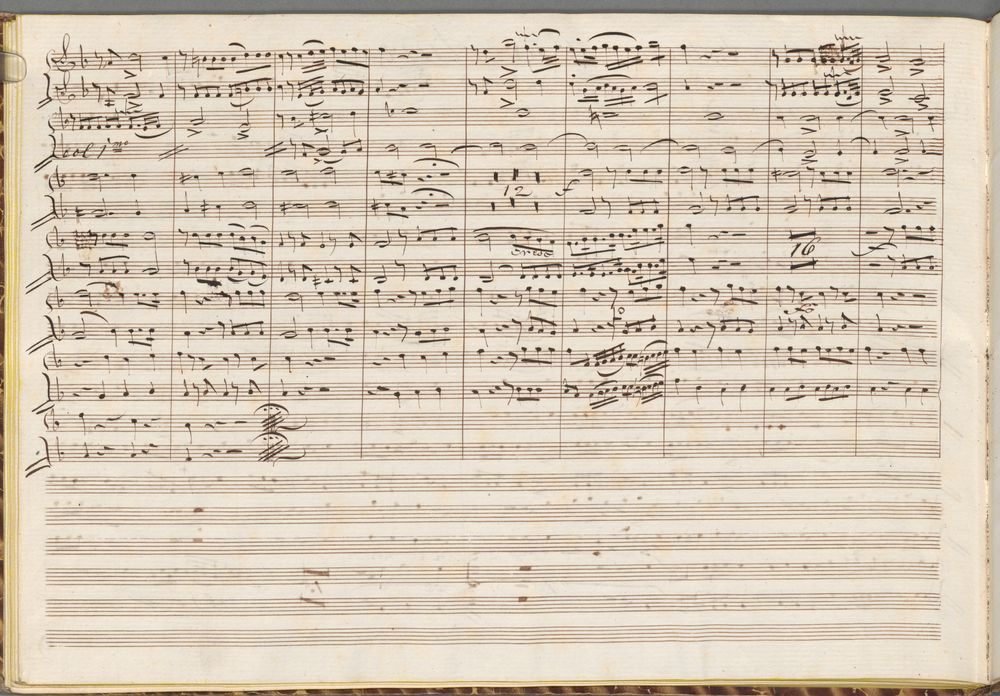 col 1mo
12 f
cresc
16 f